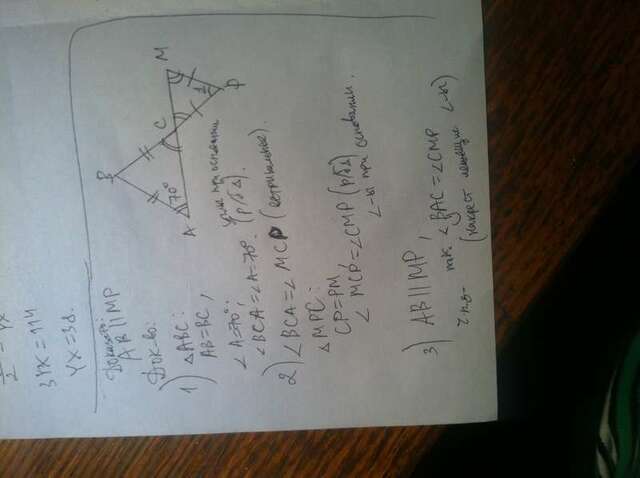 2 = YX
3YX = 114
YX = 38.
Доказать:
AB || MP
Док-во:
1) △ABC:
AB = BC,
∠A = 70°;
∠BCA = ∠A = 70°. углы при основании
(р/б △).
2) ∠BCA = ∠MCP (вертикальные).
△MPC:
CP = PM,
∠MCP = ∠CMP (р/б △)
∠-ы при основании.
3) AB || MP,
т.к. ∠BAC = ∠CMP
ч.т.д. (накрест лежащие ∠-ы)
B
A
70°
C
M
1
P